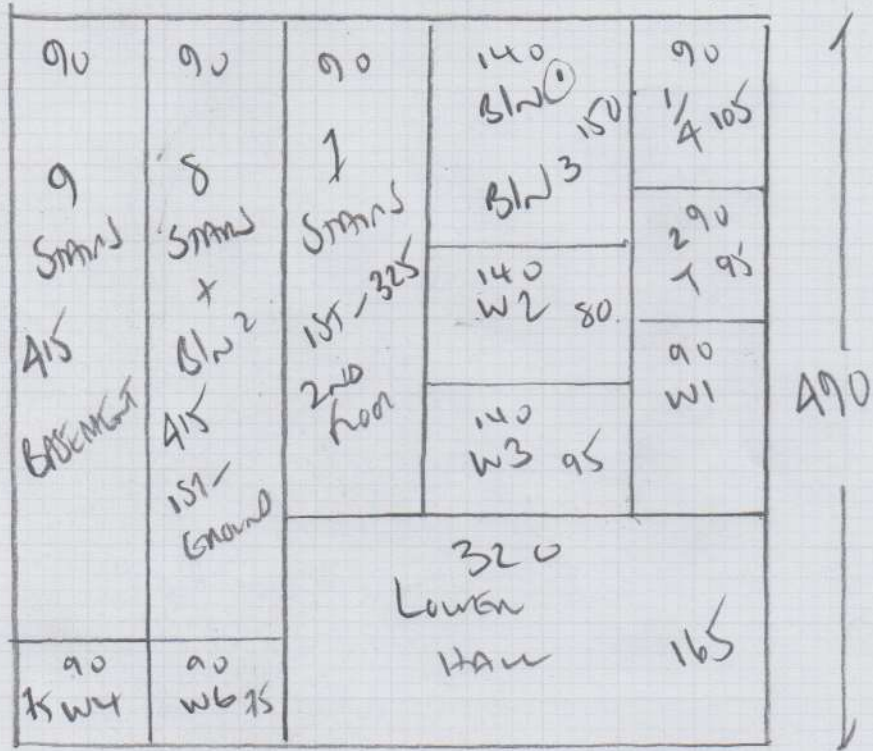 90
9
STAIRS
415
BASEMENT
90
75 W4
90
8
STAIRS
+
BIN 2
415
1ST-
GROUND
90
W6 75
90
1
STAIRS
1ST- 325
2ND
FLOOR
140
BIN 1
150
BIN 3
140
W2 80
140
W3 95
90
1/4 105
290
T 95
90
W1
320
LOWER
HALL
165
490